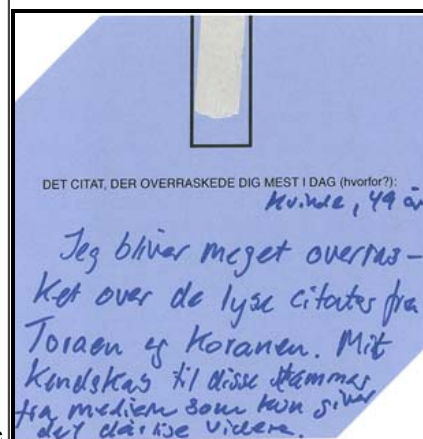 DET CITAT, DER OVERRASKEDE DIG MEST I DAG (hvorfor?):
Kvinde, 49 år
Jeg bliver meget overras-
ket over de lyse citater fra
Toraen og Koranen. Mit
kendskab til disse stammer
fra medierne som kun giver
det dårlige videre.